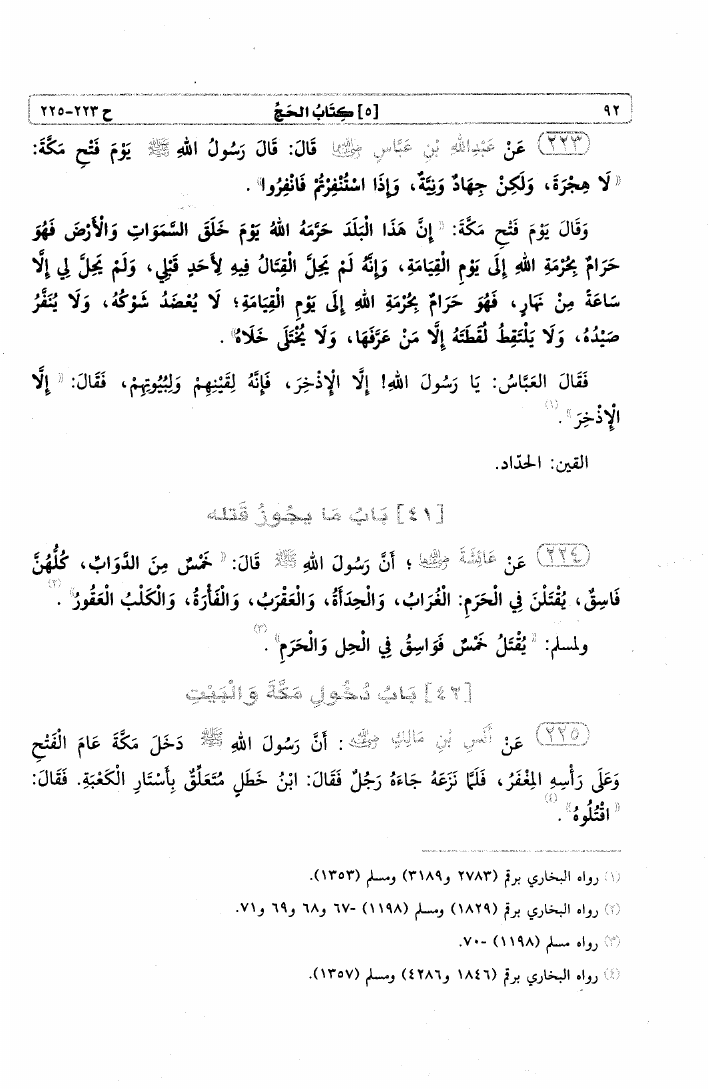 ٩٢ [٥] كِتَابُ الحَجِّ ح ٢٢٣-٢٢٥
(٢٢٣) عَنْ عَبْدِاللهِ بْنِ عَبَّاسٍ رضي الله عنهما قَالَ: قَالَ رَسُولُ اللهِ ﷺ يَوْمَ فَتْحِ مَكَّةَ:
«لَا هِجْرَةَ، وَلَكِنْ جِهَادٌ وَنِيَّةٌ، وَإِذَا اسْتُنْفِرْتُمْ فَانْفِرُوا».
وَقَالَ يَوْمَ فَتْحِ مَكَّةَ: «إِنَّ هَذَا الْبَلَدَ حَرَّمَهُ اللهُ يَوْمَ خَلَقَ السَّمَوَاتِ وَالْأَرْضَ فَهُوَ
حَرَامٌ بِحُرْمَةِ اللهِ إِلَى يَوْمِ الْقِيَامَةِ، وَإِنَّهُ لَمْ يَحِلَّ الْقِتَالُ فِيهِ لِأَحَدٍ قَبْلِي، وَلَمْ يَحِلَّ لِي إِلَّا
سَاعَةً مِنْ نَهَارٍ، فَهُوَ حَرَامٌ بِحُرْمَةِ اللهِ إِلَى يَوْمِ الْقِيَامَةِ؛ لَا يُعْضَدُ شَوْكُهُ، وَلَا يُنَفَّرُ
صَيْدُهُ، وَلَا يَلْتَقِطُ لُقَطَتَهُ إِلَّا مَنْ عَرَّفَهَا، وَلَا يُخْتَلَى خَلَاهُ».
فَقَالَ العَبَّاسُ: يَا رَسُولَ اللهِ! إِلَّا الْإِذْخِرَ، فَإِنَّهُ لِقَيْنِهِمْ وَلِبُيُوتِهِمْ، فَقَالَ: «إِلَّا
الْإِذْخِرَ»(١).
القين: الحدّاد.
[٤١] بَابُ مَا يجُوزُ قَتله
(٢٢٤) عَنْ عَائِشَةَ رضي الله عنها؛ أَنَّ رَسُولَ اللهِ ﷺ قَالَ: «خَمْسٌ مِنَ الدَّوَابِّ، كُلُّهُنَّ
فَاسِقٌ، يُقْتَلْنَ فِي الْحَرَمِ: الْغُرَابُ، وَالْحِدَأَةُ، وَالْعَقْرَبُ، وَالْفَأْرَةُ، وَالْكَلْبُ الْعَقُورُ»(٢).
ولمسلم: «يُقْتَلُ خَمْسٌ فَوَاسِقُ فِي الْحِل وَالْحَرَمِ»(٣).
[٤٢] بَابُ دُخُولِ مَكَّةَ وَالْبَيْتِ
(٢٢٥) عَنْ أَنَسِ بْنِ مَالِكٍ رضي الله عنه: أَنَّ رَسُولَ اللهِ ﷺ دَخَلَ مَكَّةَ عَامَ الْفَتْحِ
وَعَلَى رَأْسِهِ المِغْفَرُ، فَلَمَّا نَزَعَهُ جَاءَهُ رَجُلٌ فَقَالَ: ابْنُ خَطَلٍ مُتَعَلِّقٌ بِأَسْتَارِ الْكَعْبَةِ. فَقَالَ:
«اقْتُلُوهُ»(٤).
(١) رواه البخاري برقم (٢٧٨٣ و٣١٨٩) ومسلم (١٣٥٣).
(٢) رواه البخاري برقم (١٨٢٩) ومسلم (١١٩٨) -٦٧ و٦٨ و٦٩ و٧١.
(٣) رواه مسلم (١١٩٨) -٧٠.
(٤) رواه البخاري برقم (١٨٤٦ و٤٢٨٦) ومسلم (١٣٥٧).